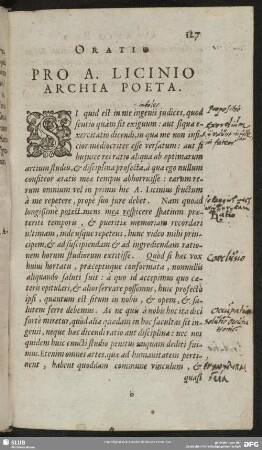 127
ORATIO
PRO A. LICINIO
ARCHIA POETA.
SI quid est in me ingenii judices, quod
sentio quàm sit exiguum: aut si qua e-
xercitatio dicendi, in qua me non infi-
cior mediocriter esse versatum: aut si
hujusce rei ratio aliqua ab optimarum
artium studiis, & disciplina profecta, à qua ego nullum
confiteor ætatis meæ tempus abhorruisse: earum re-
rum omnium vel in primis hic A. Licinius fructum
à me repetere, propè suo jure debet. Nam quoad
longissimè potest mens mea respicere spatium præ-
teriti temporis, & pueritiæ memoriam recordari
ultimam, inde usque repetens, hunc video mihi prin-
cipem, & ad suscipiendam & ad ingrediendam ratio-
nem horum studiorum extitisse. Quòd si hæc vox
hujus hortatu, præceptisque conformata, nonnullis
aliquando saluti fuit: à quo id accepimus quo cæ-
teris opitulari, & alios servare possemus, huic profectò
ipsi, quantum est situm in nobis, & opem, & sa-
lutem ferre debemus. Ac ne quis à nobis hoc ita dici
fortè miretur, quòd alia quædam in hoc facultas sit in-
genii, neque hæc dicendi ratio aut disciplina: nec nos
quidem huic cuncti studio penitus unquam dediti fui-
mus. Etenim omnes artes, quæ ad humanitatem perti-
nent, habent quoddam commune vinculum, &
quasi
b
Propositio
Ratio
Conclusio
SLUB